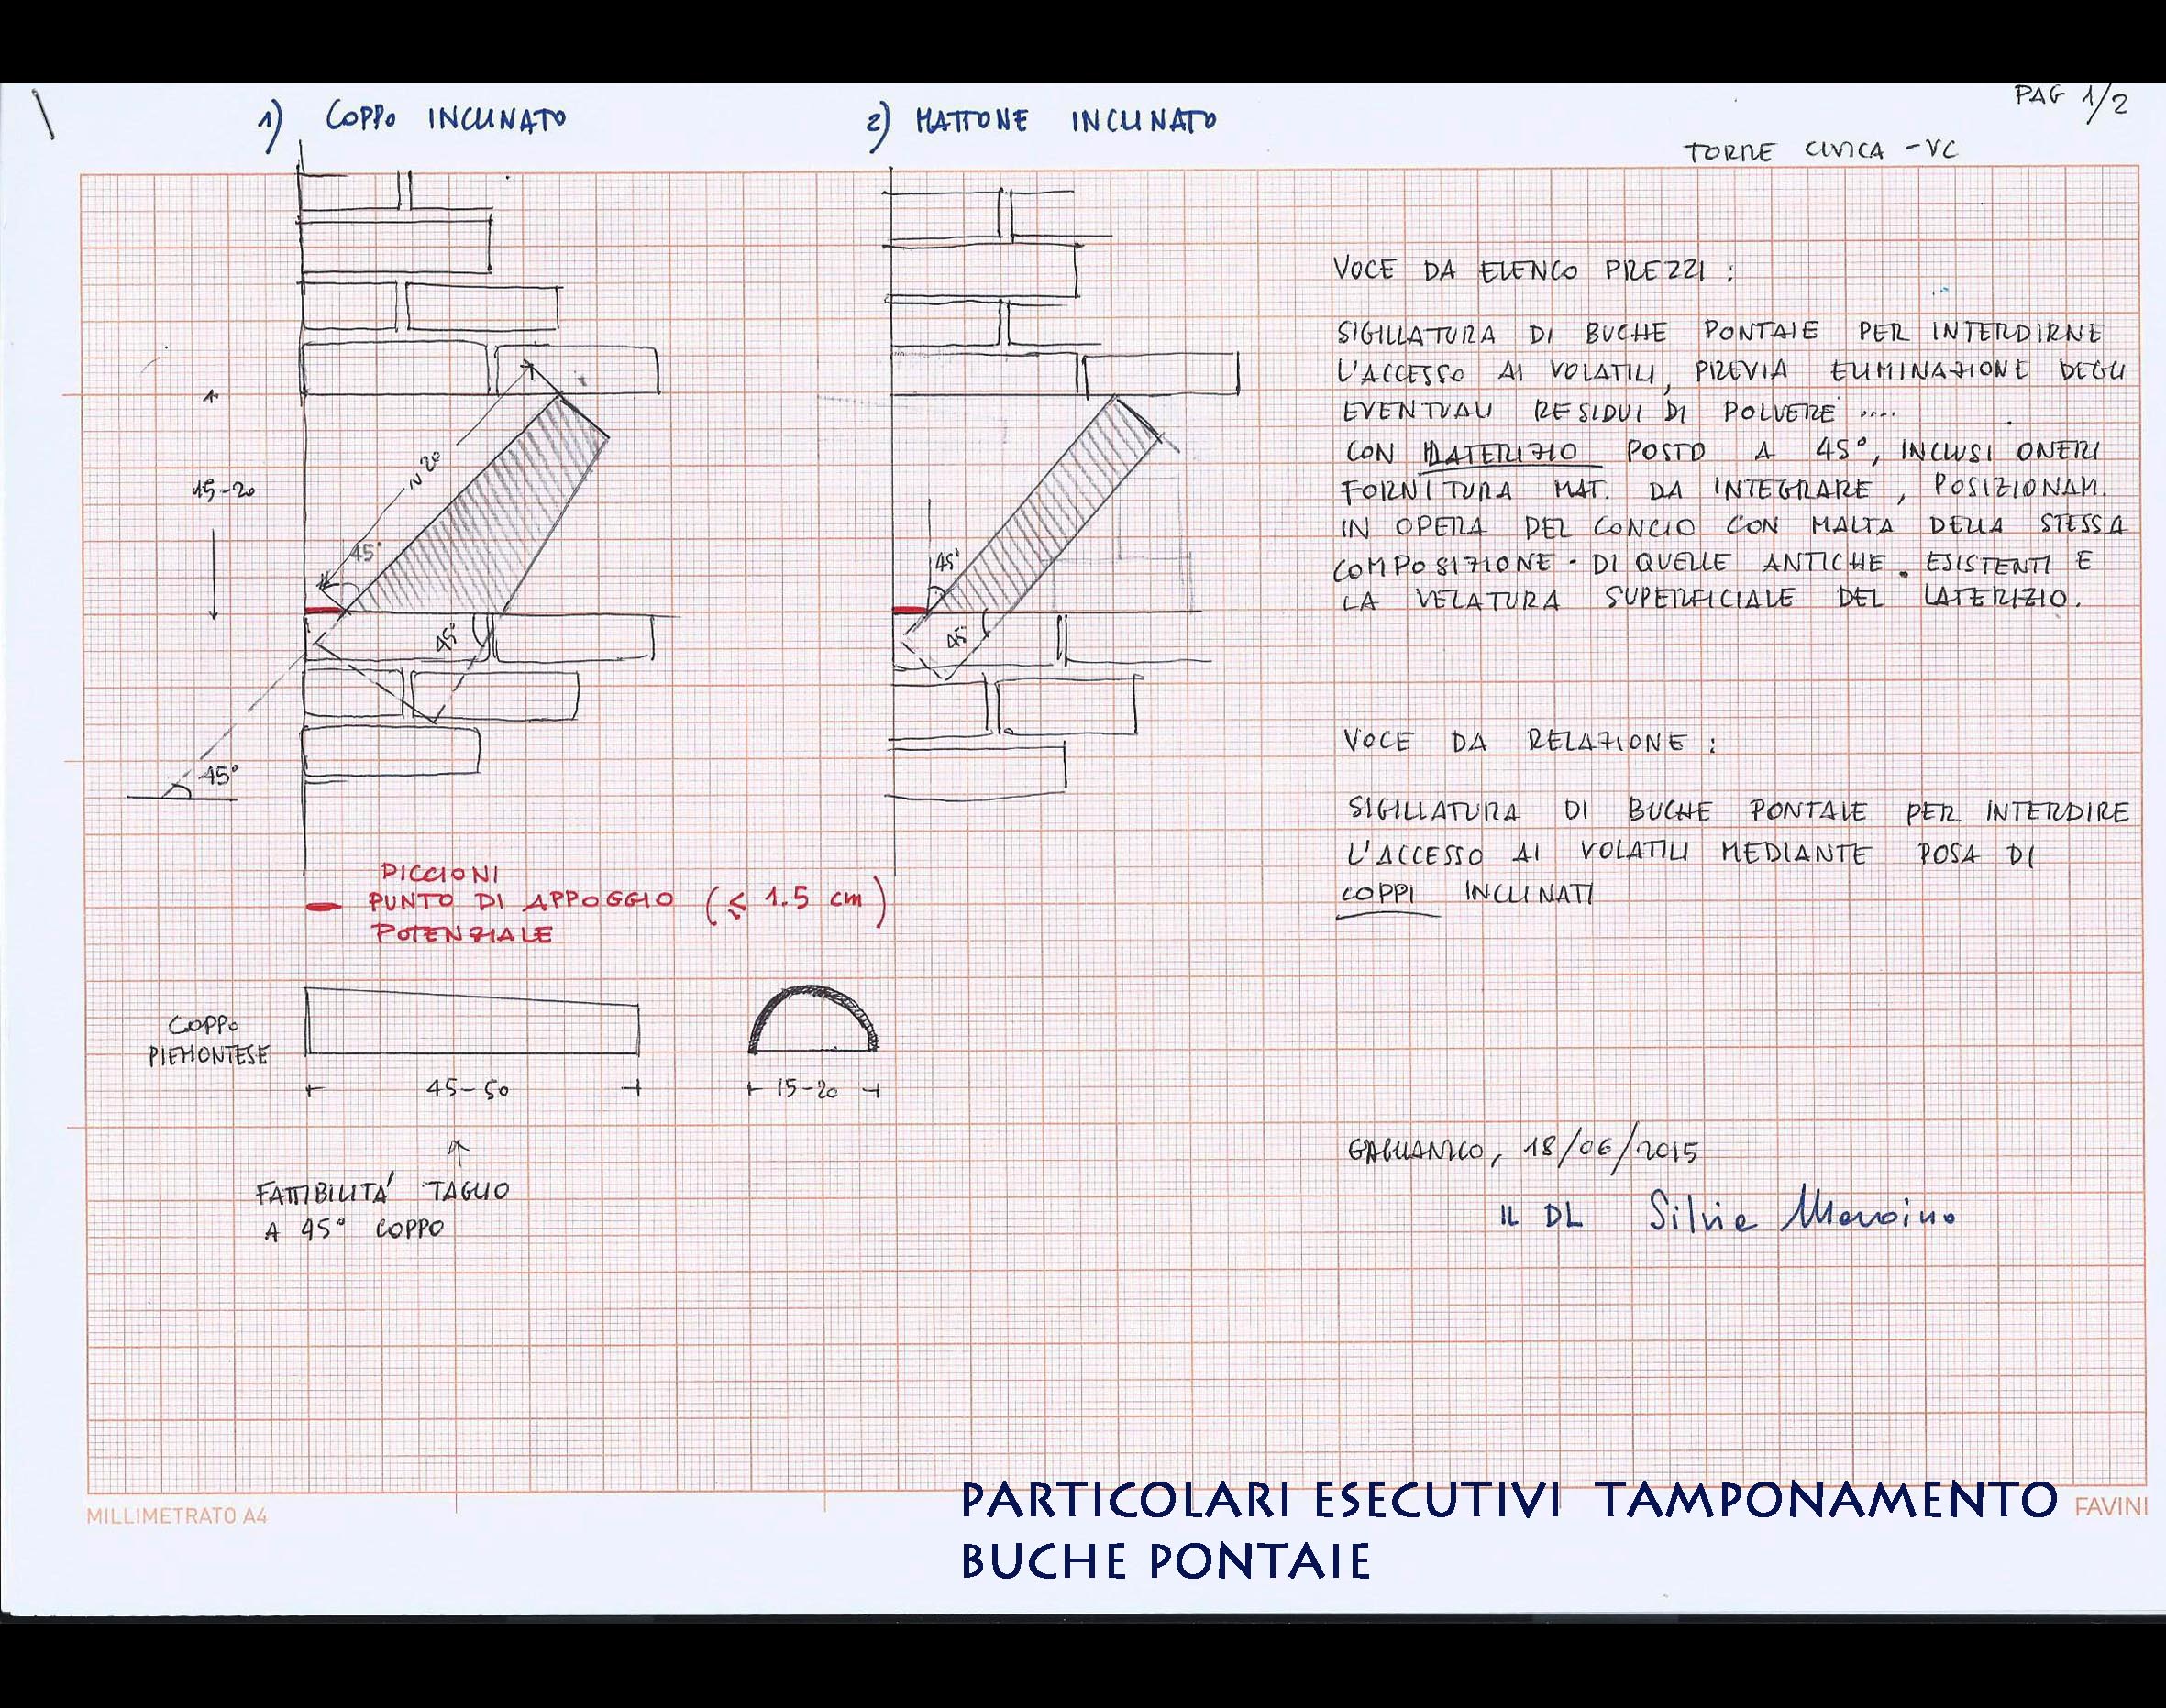 PAG 1/2
1) COPPO INCLINATO
2) MATTONE INCLINATO
TORRE CIVICA - VC
15-20
~ 20
45°
45°
45°
45°
45°
VOCE DA ELENCO PREZZI :
SIGILLATURA DI BUCHE PONTAIE PER INTERDIRNE
L'ACCESSO AI VOLATILI, PREVIA ELIMINAZIONE DEGLI
EVENTUALI RESIDUI DI POLVERE ....
CON LATERIZIO POSTO A 45°, INCLUSI ONERI
FORNITURA MAT. DA INTEGRARE, POSIZIONAM.
IN OPERA DEL CONCIO CON MALTA DELLA STESSA
COMPOSIZIONE . DI QUELLE ANTICHE . ESISTENTI E
LA VELATURA SUPERFICIALE DEL LATERIZIO.
VOCE DA RELAZIONE :
SIGILLATURA DI BUCHE PONTAIE PER INTERDIRE
L'ACCESSO AI VOLATILI MEDIANTE POSA DI
COPPI INCLINATI
PICCIONI
PUNTO DI APPOGGIO (≤ 1.5 cm)
POTENZIALE
COPPO
PIEMONTESE
45-50
15-20
FATTIBILITA' TAGLIO
A 45° COPPO
GAGLIANICO, 18/06/2015
IL DL Silvie
PARTICOLARI ESECUTIVI TAMPONAMENTO
BUCHE PONTAIE
MILLIMETRATO A4
FAVINI